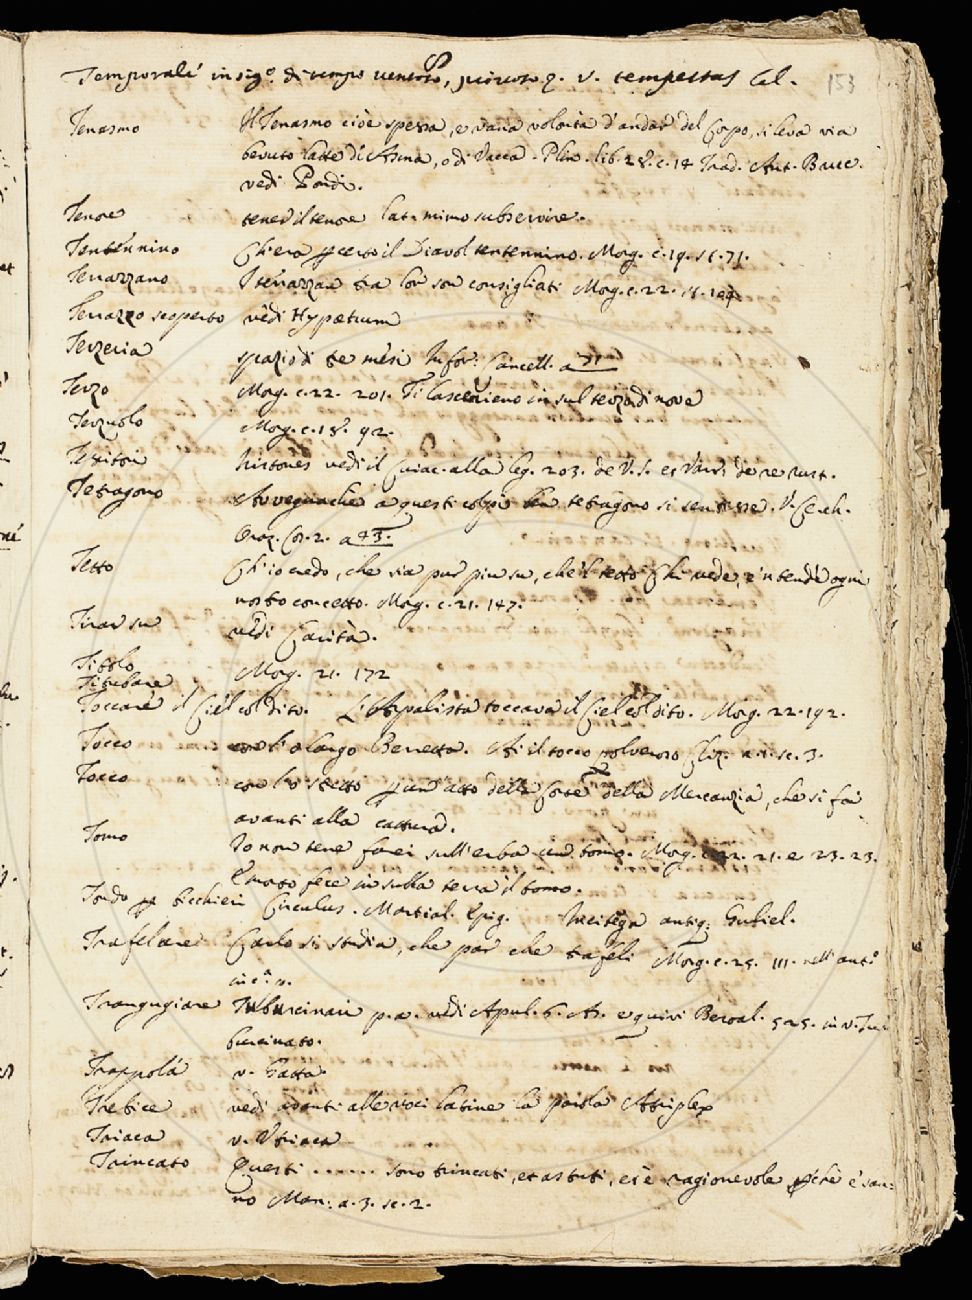 Temporale in sig.o di tempo ventoso, v. tempestas Cal. 153
Tenasmo Il Tenasmo cioè spessa, e vana volontà d'andar del Corpo, si leva via
bevuto latte d'Asina, o di Vacca. Plin. lib. 28. c. 14 Trad. Ant. Bruc.
vedi Pondi.
Tenore tener il tenore lat. mimo subservire.
Tentennino Ch'era certo il Diavol tentennino. Morg. c. 19. st. 71.
Terrazzano I terrazzan tra lor son consigliati Morg. c. 22. st.
Terrazzo scoperto vedi Hypætrum
Terzeria spazio di tre mesi Infor. Cancell. a 71
Terzo Morg. c. 22. 201. in sul terzo di nove
Terzuolo Morg. c. 18. 92.
Testitori histones vedi il Cuiac. alla leg. 203. de V. S. et Varr. de re rust.
Tetragono Avvegnachè a questi colpi ben tetragono si sentisse. V. Ce. ch.
Oraz. Cor. 2. a 43.
Tetto Ch'io credo, che sia pur più su, che'l tetto Chi vede, e'ntende ogni
nostro concetto. Morg. c. 21. 147.
Tirar su vedi Carità.
Titolo Morg. 21. 172
Titubare
Toccare il Ciel col dito. L'Arpalista toccava il Ciel col dito. Morg. 22. 192.
Tocco con l'o largo Berretta. il tocco polveroso Cliz. a. 1. sc. 3.
Tocco con l'o stretto un atto della Corte della Mercanzia, che si fa
avanti alla cattura.
Tomo Io non tene farei sull'erba un tomo. Morg. 22. 21. e 23. 23.
fece in sulla terra il tomo.
Tondo bicchieri Circulus. Martial. Epig. Incitega antiq. Gutiel.
Trafelare Carlo si studia, che par che trafeli Morg. c. 25. 111. nell'ant.o
Trangugiare Tuburcinari p. a. vedi Apul. 6. As. e quivi Beroal. 525. in v. Tu-
burcinato.
Trappola v. Gatta.
Trebice vedi avanti alle voci latine la parola Atriplex
Triaca v. Utriaca
Trincato Questi ...... sono trincati, et astuti, et è ragionevole perchè e' san-
no Man: a. 3. sc. 2.